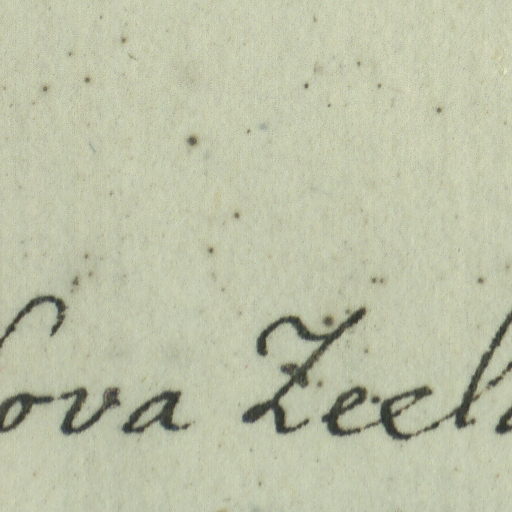 ova Zeel